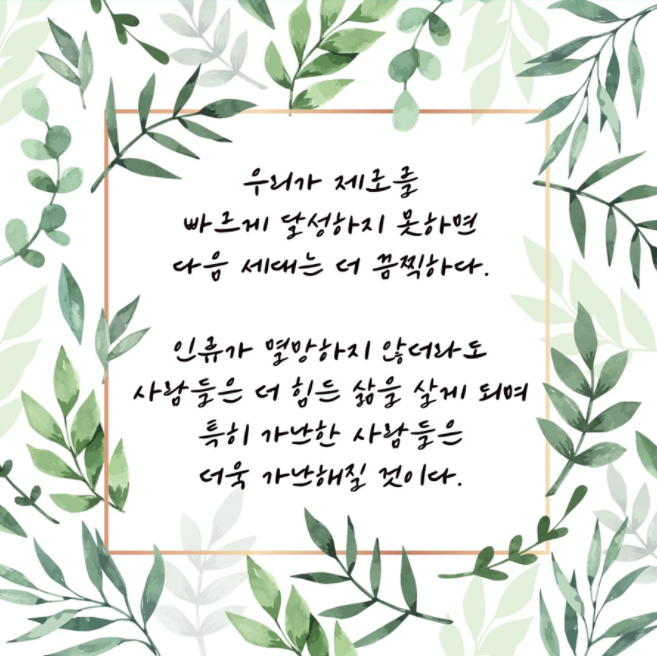 우리가 제로를
빠르게 달성하지 못하면
다음 세대는 더 끔찍하다.
인류가 멸망하지 않더라도
사람들은 더 힘든 삶을 살게 되며
특히 가난한 사람들은
더욱 가난해질 것이다.